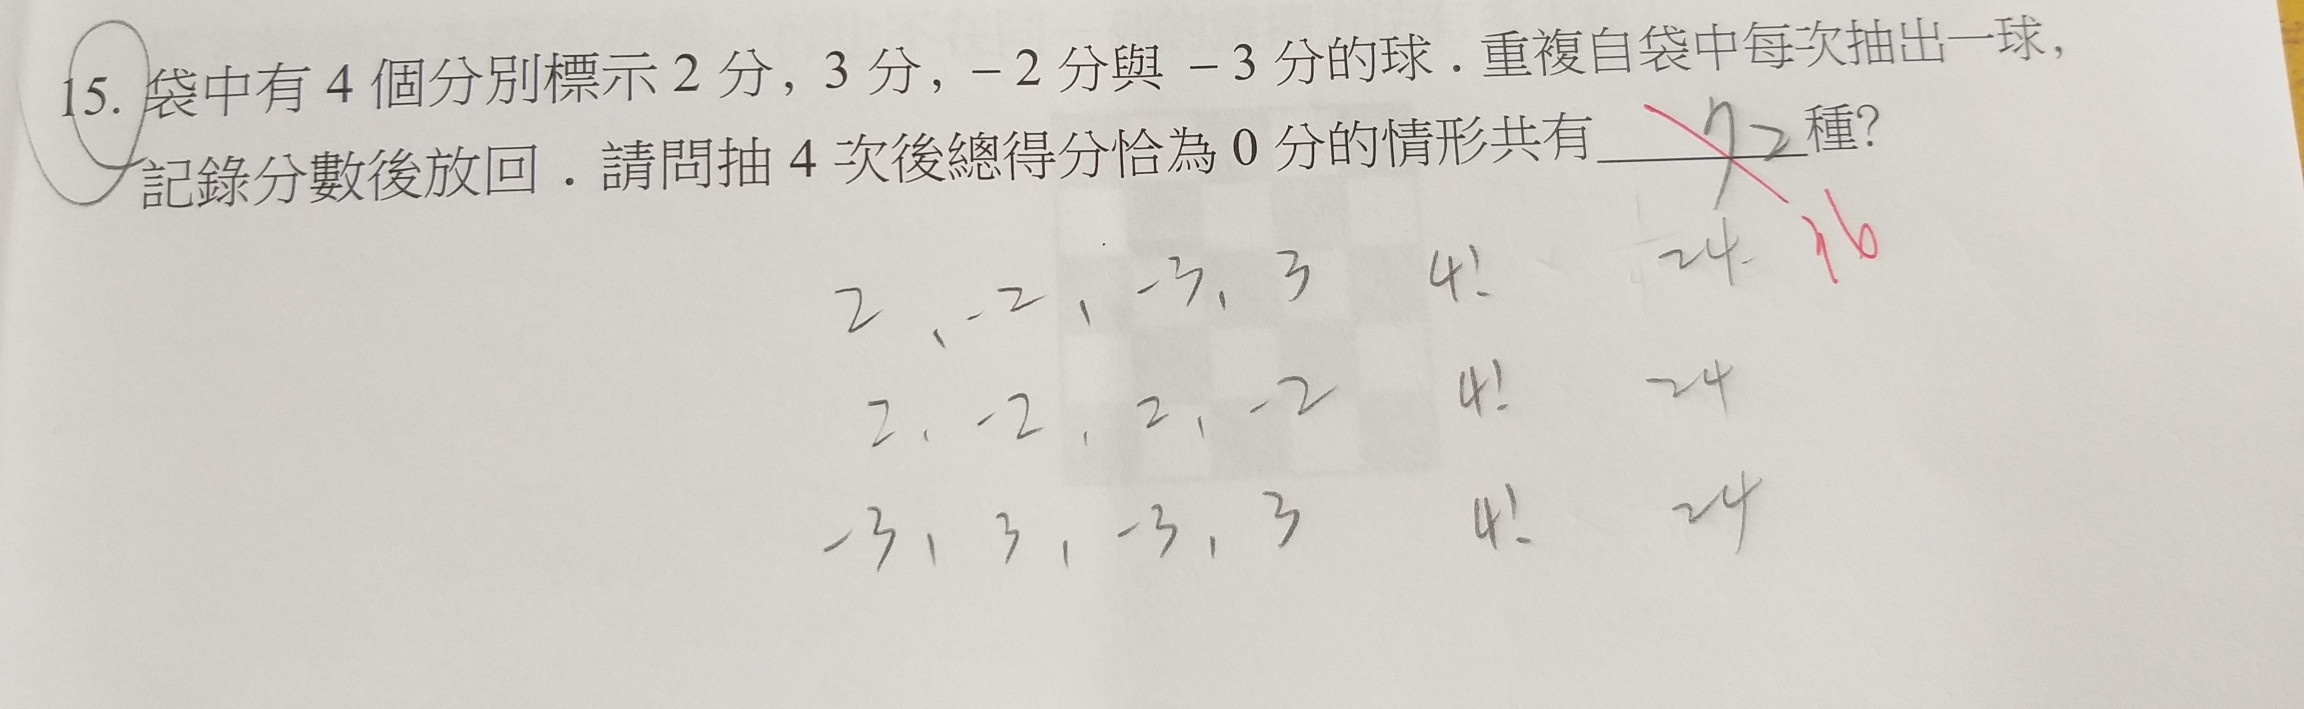 15. 袋中有 4 個分別標示 2 分, 3 分, －2 分與 －3 分的球．重複自袋中每次抽出一球,
記錄分數後放回．請問抽 4 次後總得分恰為 0 分的情形共有 72 種?
2, -2, -3, 3 4! 24 36
2, -2, 2, -2 4! 24
-3, 3, -3, 3 4! 24